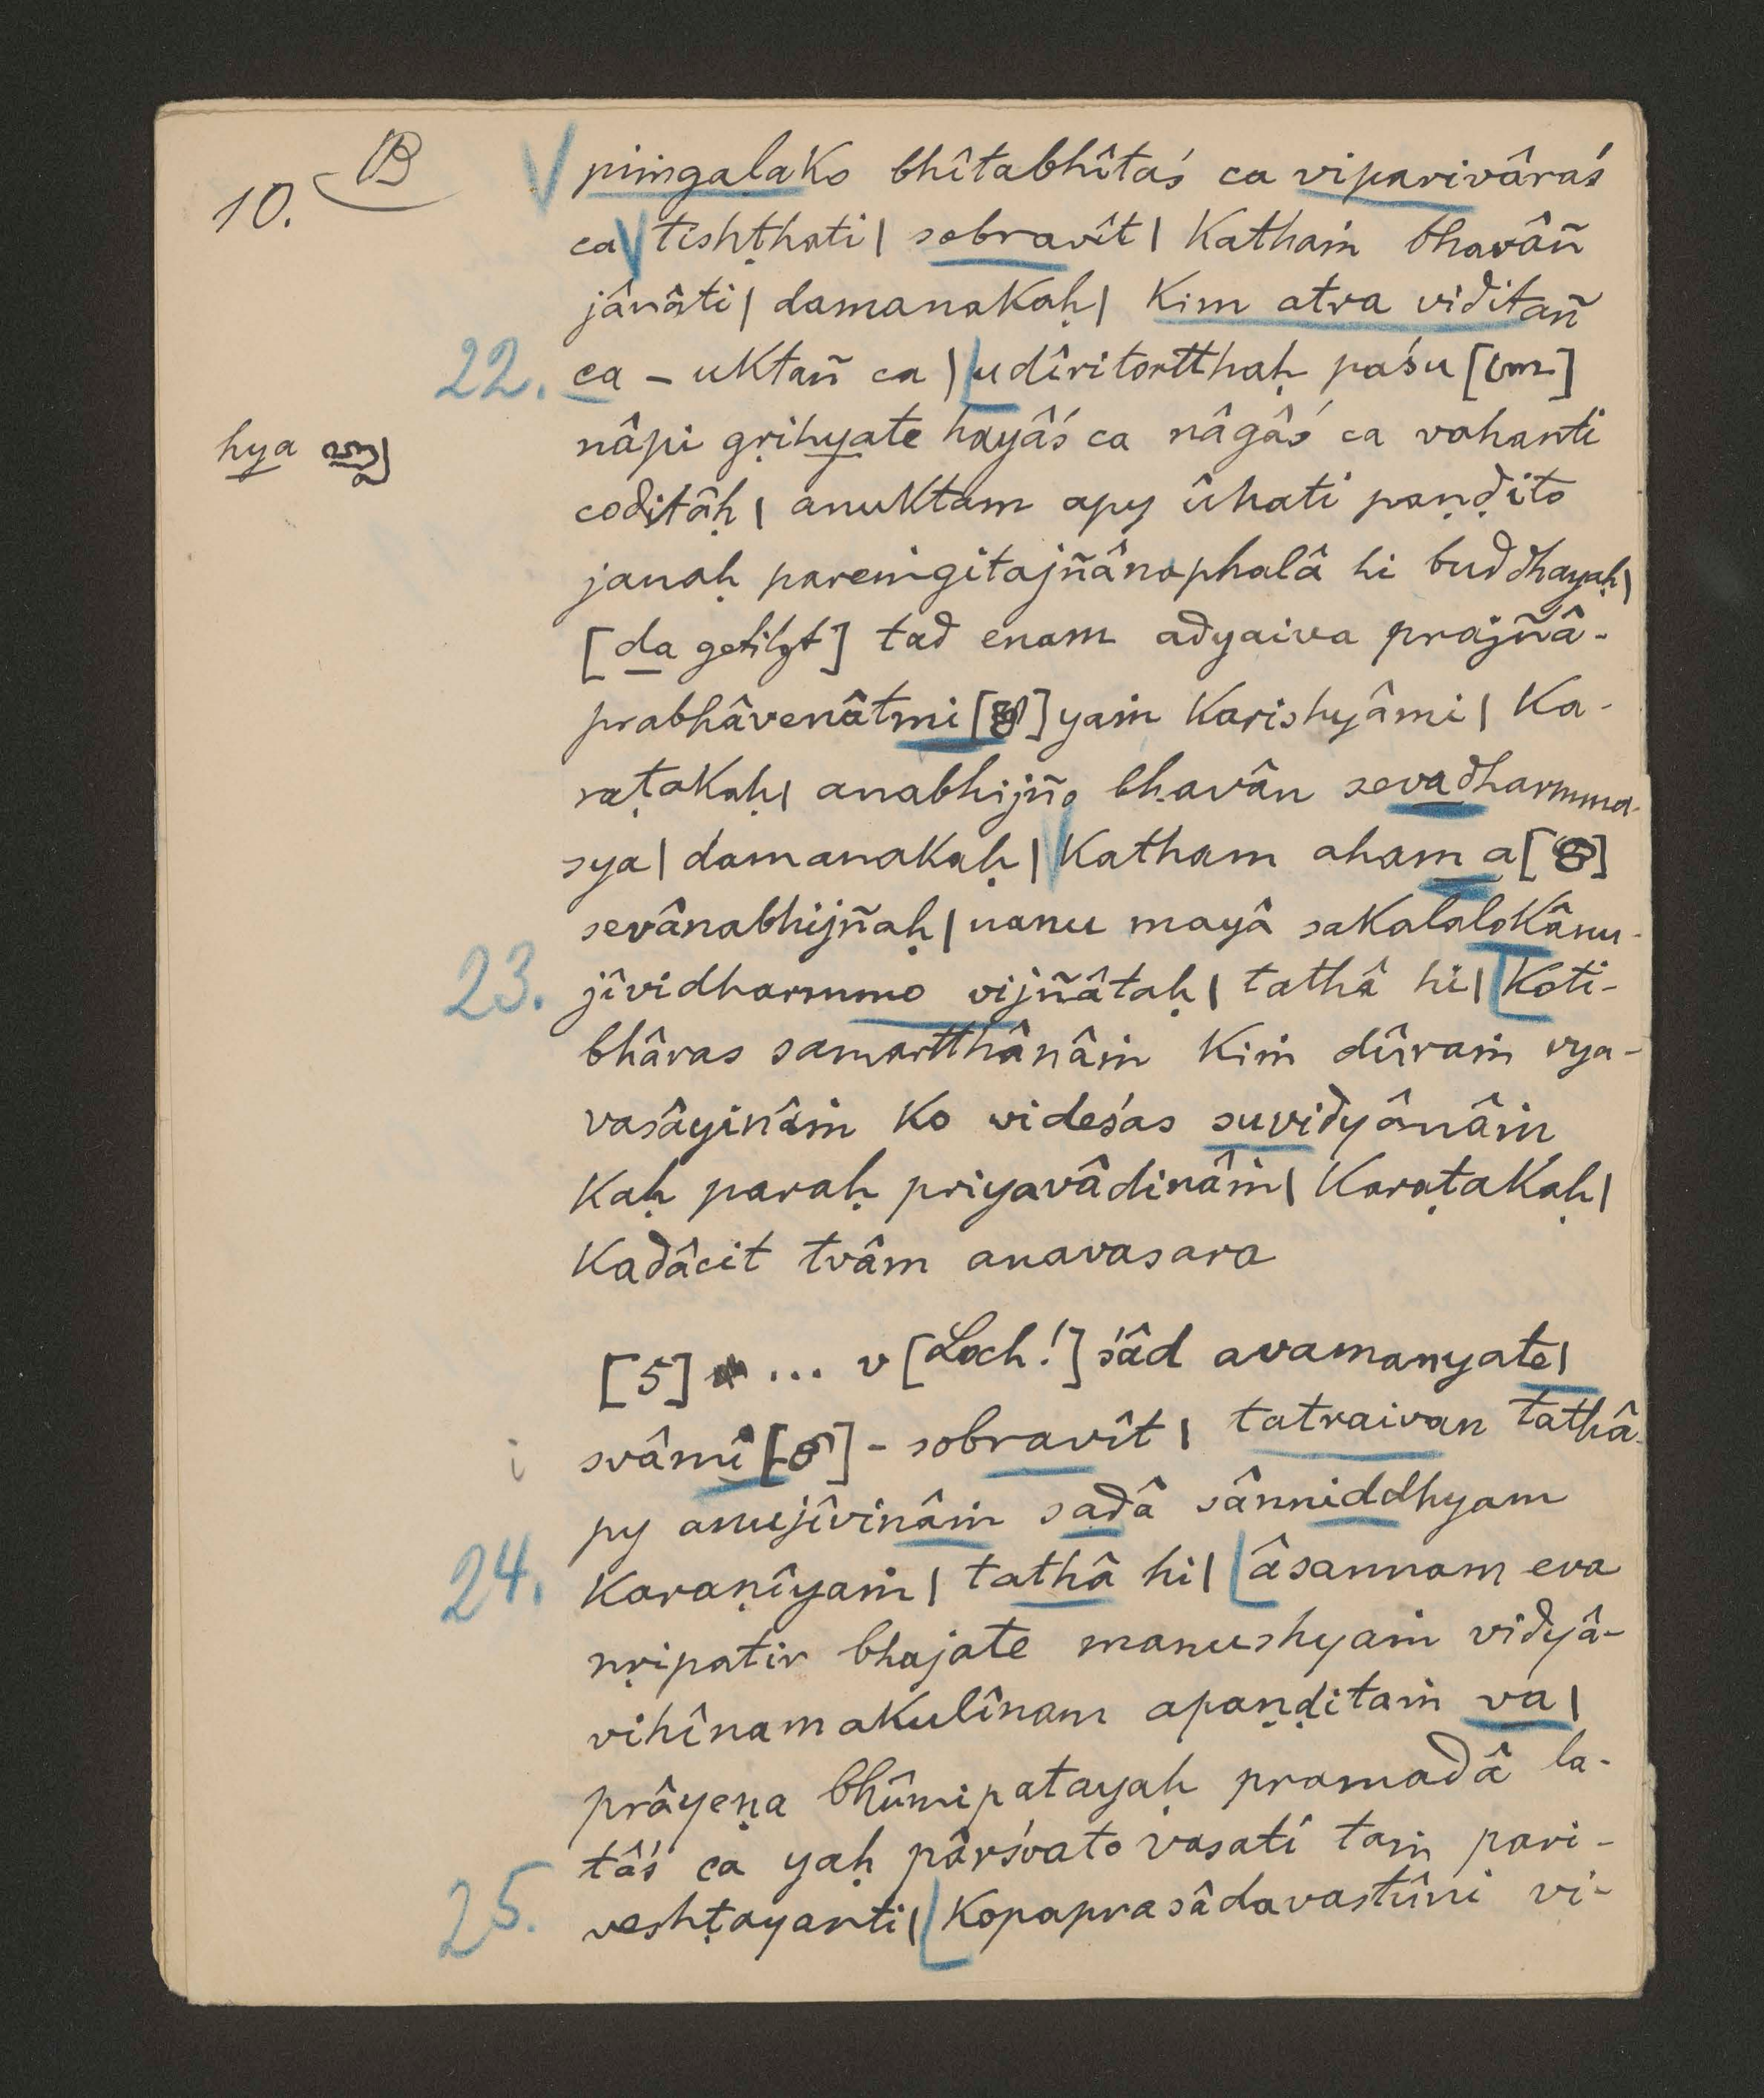 10. B
piṁgaḷako bhîtabhîtaś ca viparivâraś
ca tishṭhati | sobravît | Kathaṁ bhavâñ
jânâti | damanakaḥ | Kim atra viditañ
22. ca – uktañ ca | udîritortthaḥ paśu [ ]
hya
nâpi gṛihyate hayâś ca nâgâś ca vahanti
coditâḥ | anuktam apy ûhati paṇḍito
janaḥ pareṁgitajñânaphalâ hi buddhayaḥ |
[da getilgt] tad enam adyaiva prajñâ-
prabhâvenâtmi [ ] yaṁ karishyâmi | Ka-
raṭakaḥ | anabhijño bhavân sevadharmma-
sya | damanakaḥ | Katham aham a [ ]
sevânabhijñaḥ | nanu mayâ sakalalokânu-
23. jîvidharmmo vijñâtaḥ | tathâ hi | Koti-
bhâras samartthânâṁ kiṁ dûraṁ vya-
vasâyinâṁ ko videśas suvidyânâṁ
kaḥ paraḥ priyavâdinâṁ | Karaṭakaḥ |
Kadâcit tvâm anavasara
[5] ... v [Loch!] śâd avamanyate |
i svâmî [ ] – sobravît | tatraivan tathâ-
py anujîvinâṁ sadâ sânniddhyam
24. karaṇîyaṁ | tathâ hi | âsannam eva
nṛipatir bhajate manushyaṁ vidyâ-
vihînamakulînam apaṇḍitaṁ va |
prâyeṇa bhûmipatayaḥ pramadâ la-
tâś ca yaḥ pârśvato vasati taṁ pari-
25. veshṭayanti | Kopaprasâdavastûni vi-